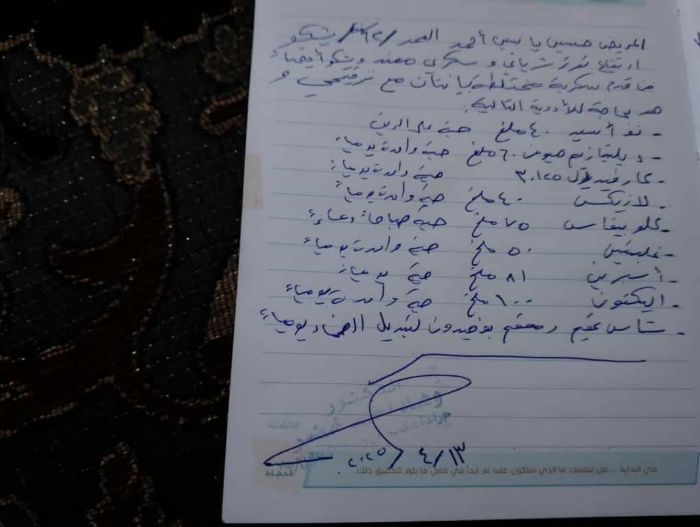 المريض حسين ياسين أحمد العمر /٦٢سنة/ يشكو
ارتفاع توتر شرياني و سكري معند ويشكو أيضاً
من قدم سكرية مختلطة بانتان مع تزنيخي و
هو بحاجة للأدوية التالية:
- نو أسيد ٤٠ ملغ حبة على الريق
- ديلتيازيم ٦٠ ملغ حبة واحدة يومياً
- كارفيديلول ٣,١٢٥ حبة واحدة يومياً
- لازيكس ٤٠ ملغ حبة واحدة يومياً
- كلوبيفاس ٧٥ ملغ حبة صباحاً و مساءً
- ٥٠ ملغ حبة واحدة يومياً
- أسبرين ٨١ ملغ حبة يومياً
- الدكتون ١٠٠ ملغ حبة واحدة يومياً
- شاش عقيم و معقم بوفيدون لتبديل الضماد يومياً
الدكتور
٢٠٢٥/٤/١٣
في البداية ... قل لنفسك ما الذي ستكون عليه ثم ابدأ في فعل ما يلزم لتحقيق ذلك.